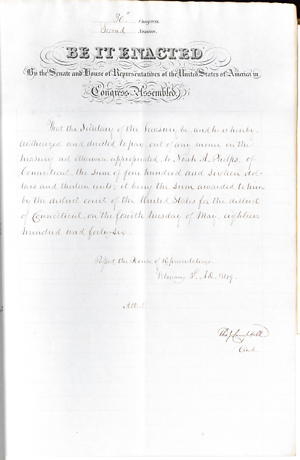 30th Congress
Second Session
BE IT ENACTED
By the Senate and House of Representatives of the United States of America in
Congress Assembled,
That the Secretary of the Treasury be, and he is hereby
authorized and directed to pay, out of any money in the
treasury not otherwise appropriated, to Noah A. Phelps, of
Connecticut, the sum of four hundred and sixteen dol-
lars and thirteen cents; it being the sum awarded to him
by the district court of the United States for the district
of Connecticut, on the fourth Tuesday of May, eighteen
hundred and forty-six.
Passed the House of Representatives
February
Attest
Campbell
Clerk